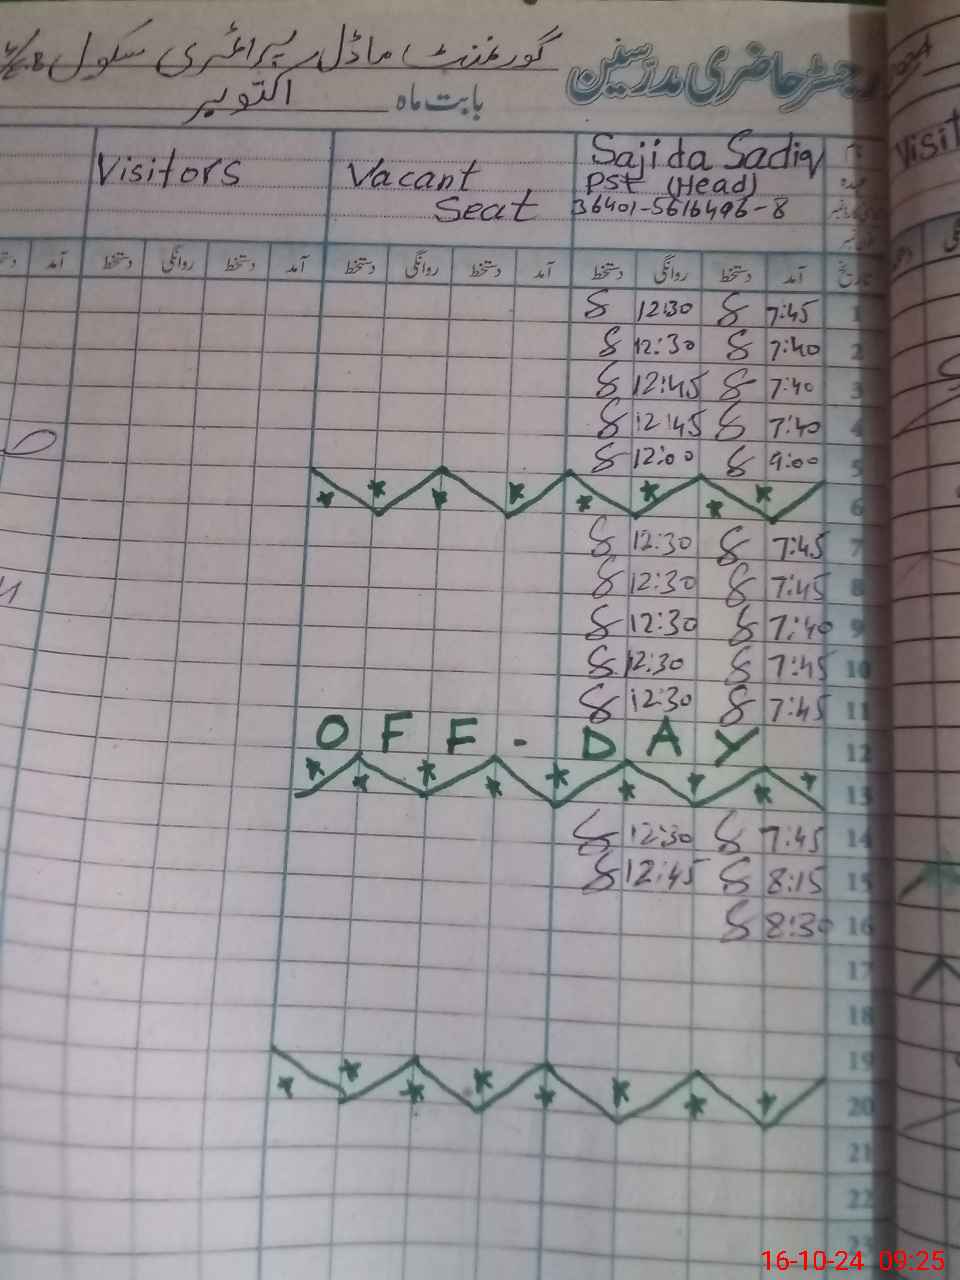 رجسٹر حاضری مدرسین گورنمنٹ ماڈل پرائمری سکول
بابت ماہ اکتوبر
Sajida Sadiq
PST (Head)
36401-5616496-8
Vacant
Seat
Visitors
Visit
تاریخ آمد دستخط روانگی دستخط آمد دستخط روانگی دستخط آمد دستخط روانگی دستخط آمد
1 7:45 12:30
2 7:40 12:30
3 7:40 12:45
4 7:40 12:45
5 9:00 12:00
6
7 7:45 12:30
8 7:45 12:30
9 7:40 12:30
10 7:45 12:30
11 7:45 12:30
12 OFF-DAY
13
14 7:45 12:30
15 8:15 12:45
16 8:30
17
18
19
20
21
22
23
16-10-24 09:25